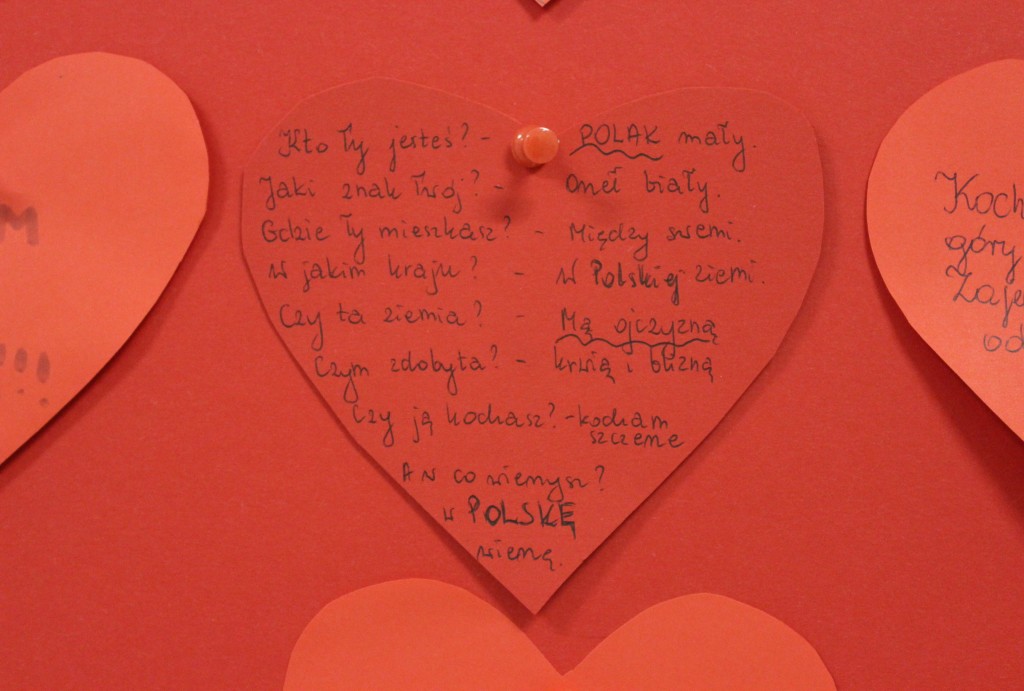 Kto Ty jesteś? - POLAK mały.
Jaki znak Twój? - Orzeł biały.
Gdzie Ty mieszkasz? - Między swemi.
w jakim kraju? - w Polskiej ziemi.
Czy ta ziemia? - Mą ojczyzną
Czym zdobyta? - krwią i blizną
Czy ją kochasz? - kocham
szczerze
A w co wierzysz?
w POLSKĘ
wierzę.
M
!!!
Koch
góry
Zaje
od